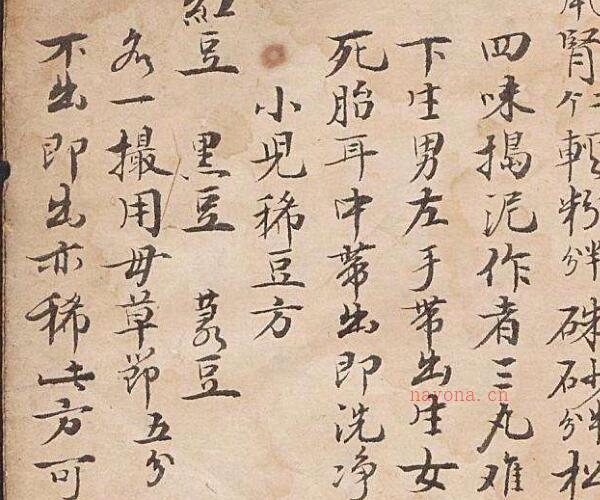 腎仁輕粉分半硃砂分半松
四味搗泥作者三丸难
下生男左手帶出生女
死胎耳中帶出即洗净
小児稀豆方
紅豆 黑豆 菉豆
各一撮用毋草節五分
不出即出亦稀此方可
nayona.cn